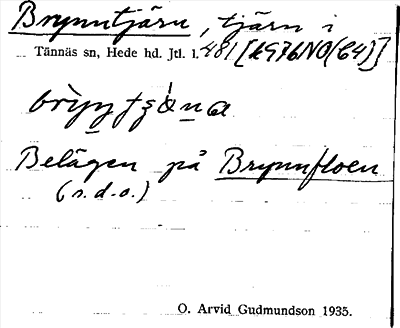 Brynntjärn, tjärn i
Tännäs sn, Hede hd. Jtl. l. 481 [k976NO(64)]
Belägen på Brynnfloen
(s.d.o.)
O. Arvid Gudmundson 1935.